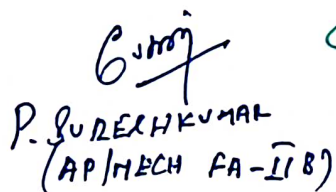 P. SURESHKUMAR
(AP/MECH FA-II B)